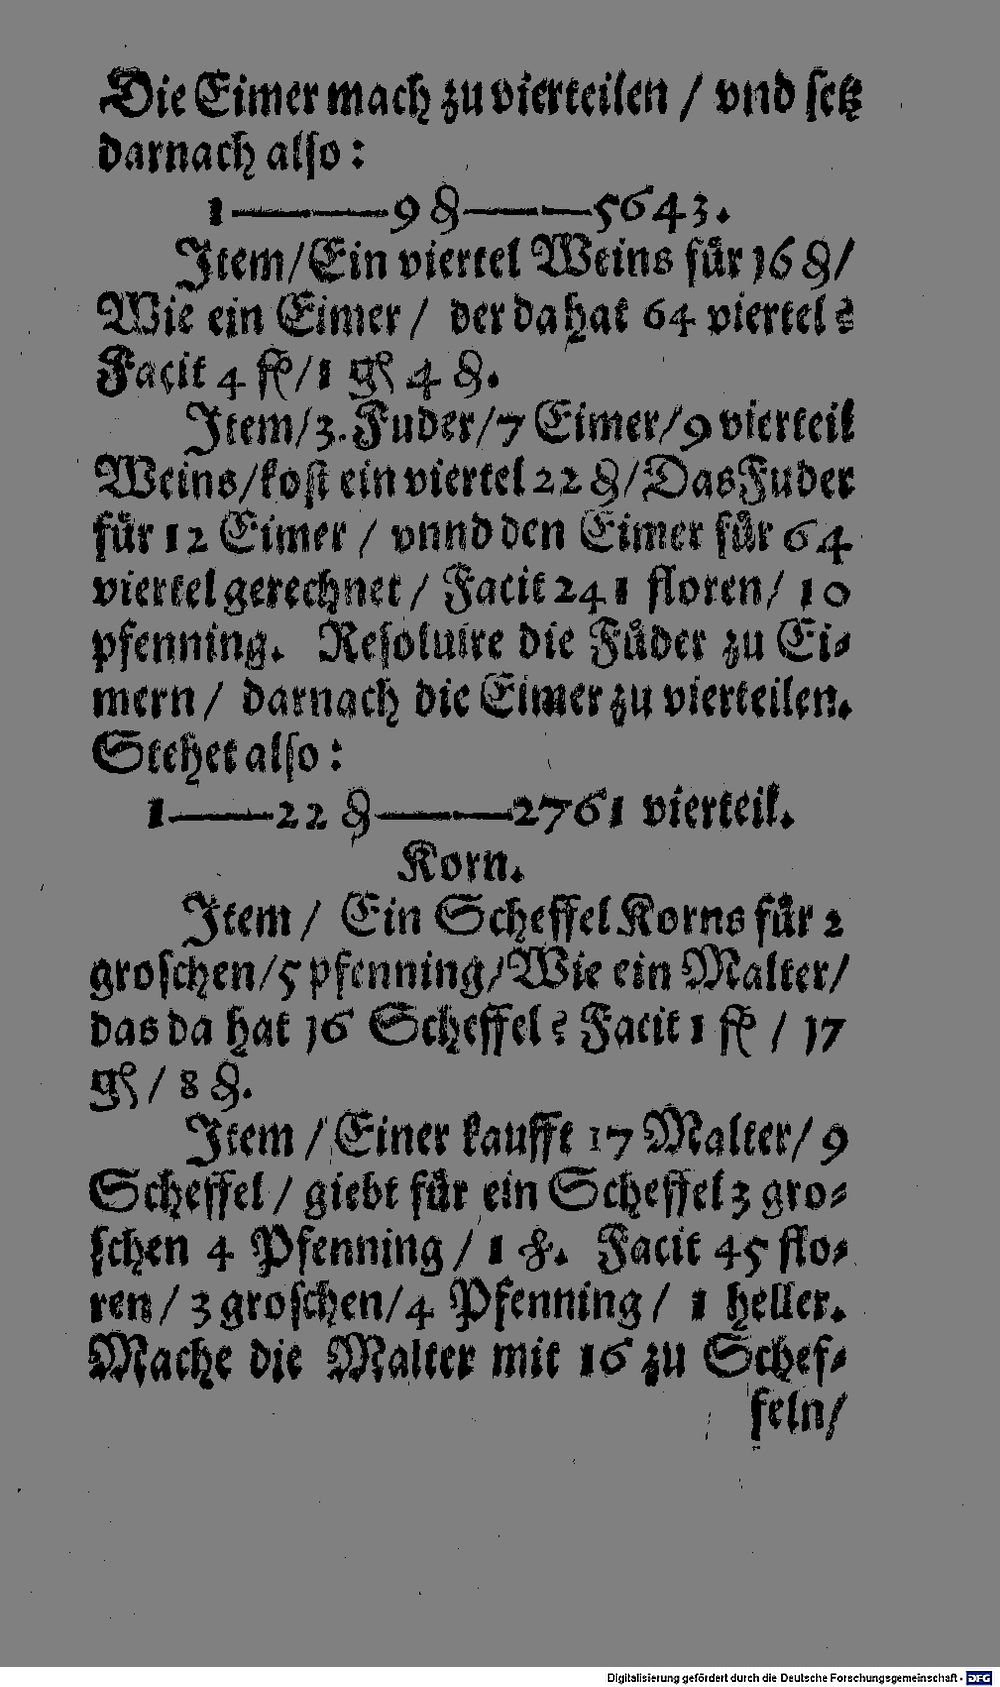 Die Eimer mach zu vierteilen / vnd setz
darnach also:
1——9 ₰——5643.
Item/Ein viertel Weins für 16 ₰/
Wie ein Eimer / der da hat 64 viertel?
Facit 4 fl/1 gl 4 ₰.
Item/3. Fuder/7 Eimer/9 vierteil
Weins/kost ein viertel 22 ₰/Das Fuder
für 12 Eimer / vnnd den Eimer für 64
viertel gerechnet / Facit 241 floren/ 10
pfenning. Resoluire die Fůder zu Ei-
mern / darnach die Eimer zu vierteilen.
Stehet also:
1——22 ₰——2761 vierteil.
Korn.
Item / Ein Scheffel Korns für 2
groschen/5 pfenning/Wie ein Malter/
das da hat 16 Scheffel? Facit 1 fl / 17
gl / 8 ₰.
Item / Einer kaufft 17 Malter/ 9
Scheffel / giebt für ein Scheffel 3 gro-
schen 4 Pfenning / 1 . Facit 45 flo-
ren / 3 groschen/4 Pfenning / 1 heller.
Mache die Malter mit 16 zu Schef-
feln/
Digitalisierung gefördert durch die Deutsche Forschungsgemeinschaft - DFG